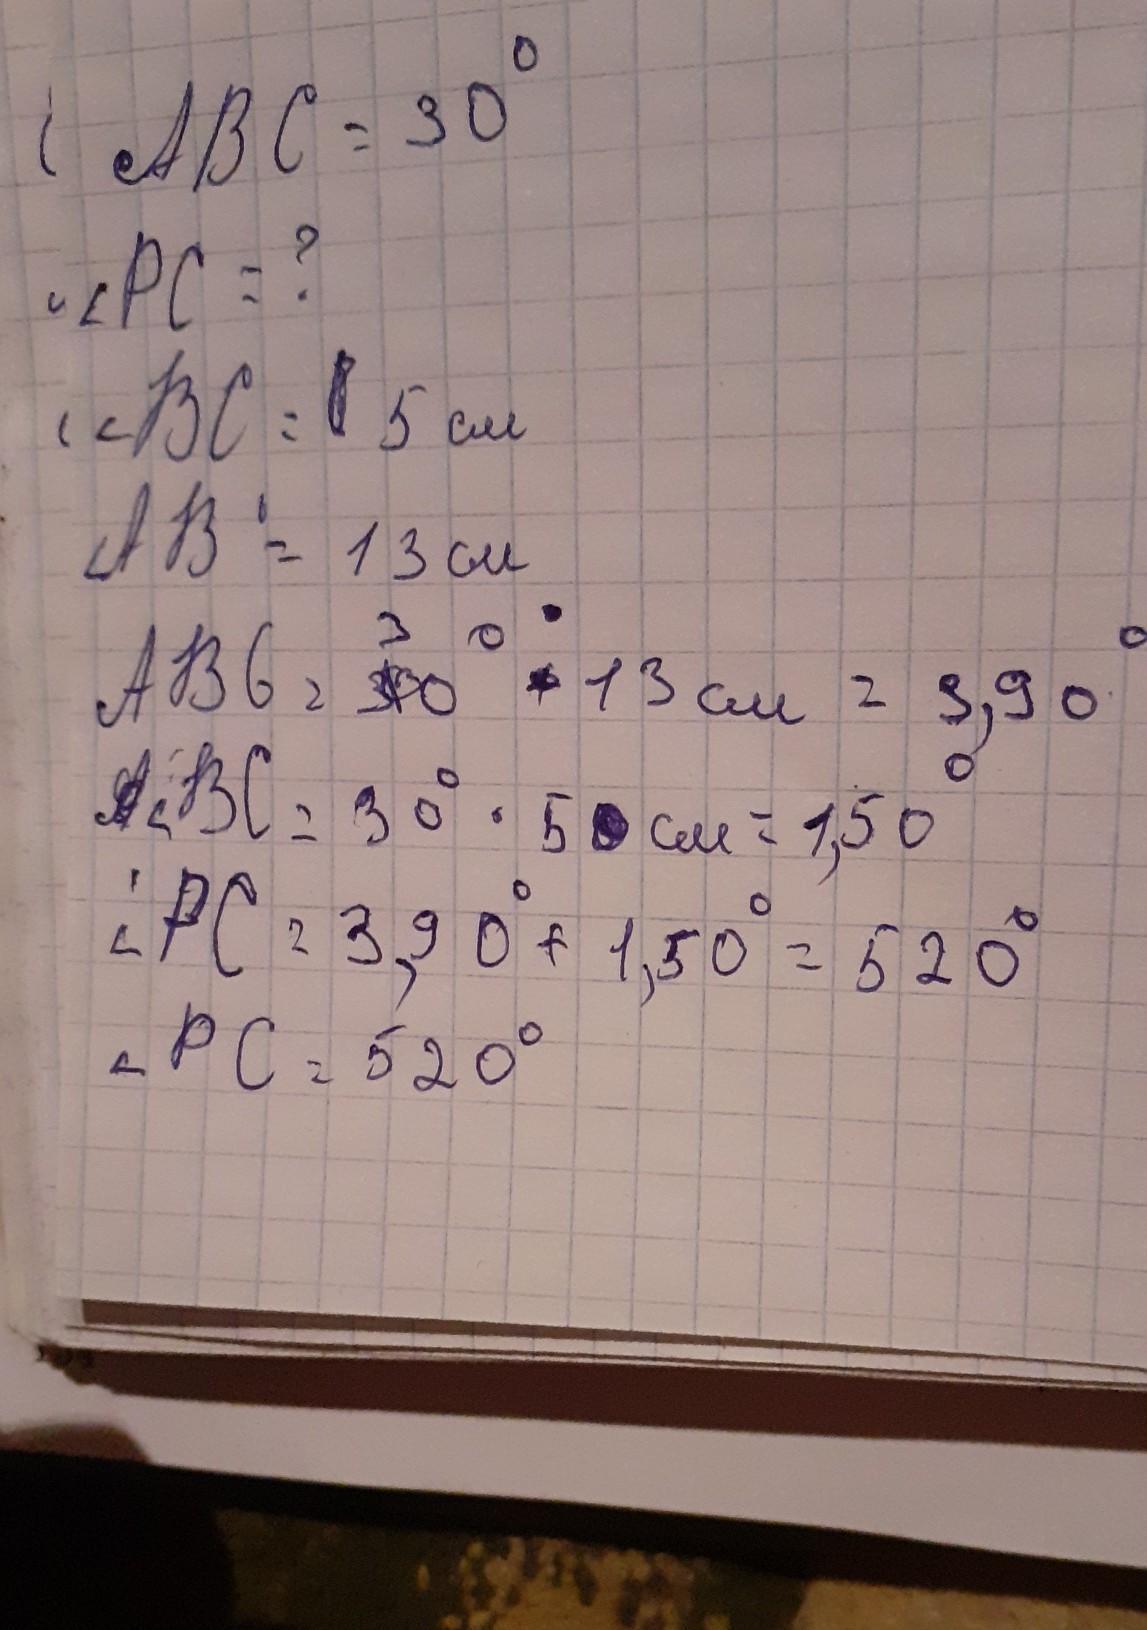 ABC = 30°
∠PC = ?
∠BC = 5 см
∠AB = 13 см
ABC = 30° · 13 см = 3,90°
∠BC = 30° · 5 см = 1,50°
∠PC = 3,90° + 1,50° = 520°
∠PC = 520°